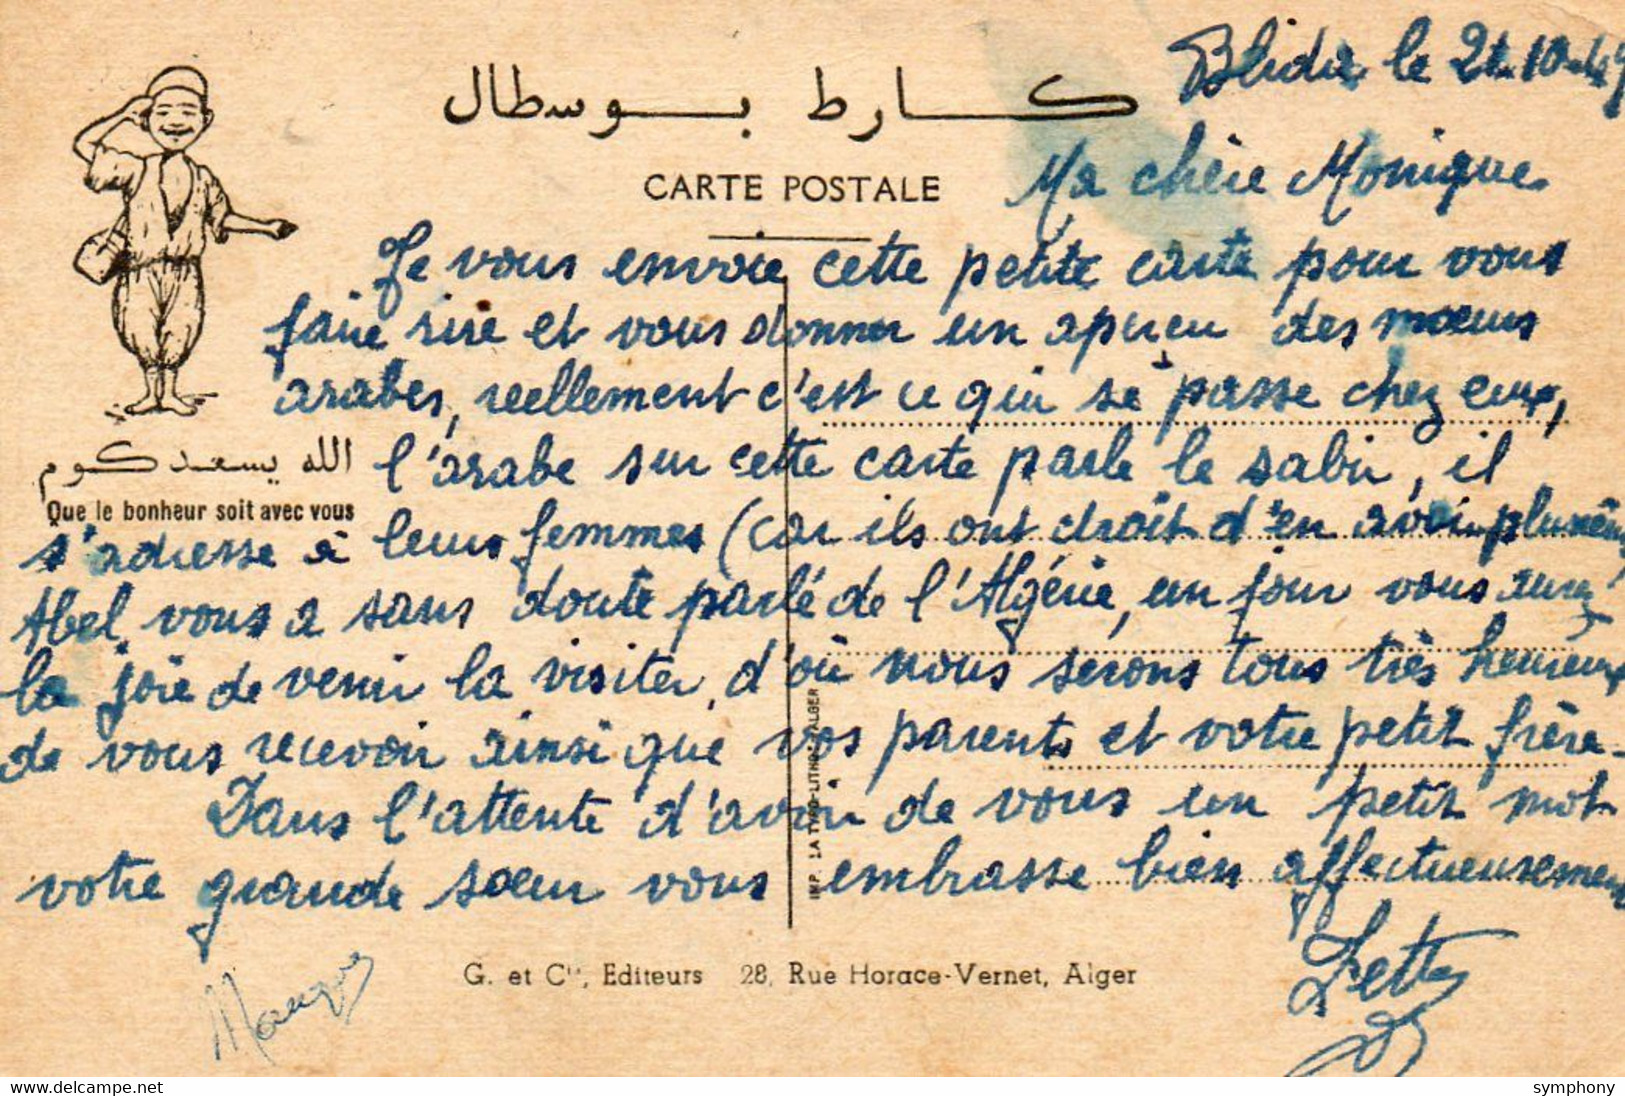 Blida le 21-10-49
كارط بوسطال
CARTE POSTALE
Ma chère Monique
Je vous envoie cette petite carte pour vous
faire rire et vous donner un aperçu des mœurs
arabes, réellement c'est ce qui se passe chez eux,
الله يسعدكوم
Que le bonheur soit avec vous
l'arabe sur cette carte parle le sabir, il
s'adresse à leurs femmes (car ils ont droit d'en avoir plusieurs
Abel vous a sans doute parlé de l'Algérie, un jour vous aurez
la joie de venir la visiter, d'où nous serons tous très heureux
de vous recevoir ainsi que vos parents et votre petit frère.
Dans l'attente d'avoir de vous un petit mot
votre grande sœur vous embrasse bien affectueusement
IMP. LA TYPO-LITHO - ALGER
G. et Cie, Editeurs 28, Rue Horace-Vernet, Alger
delcampe.net
symphony